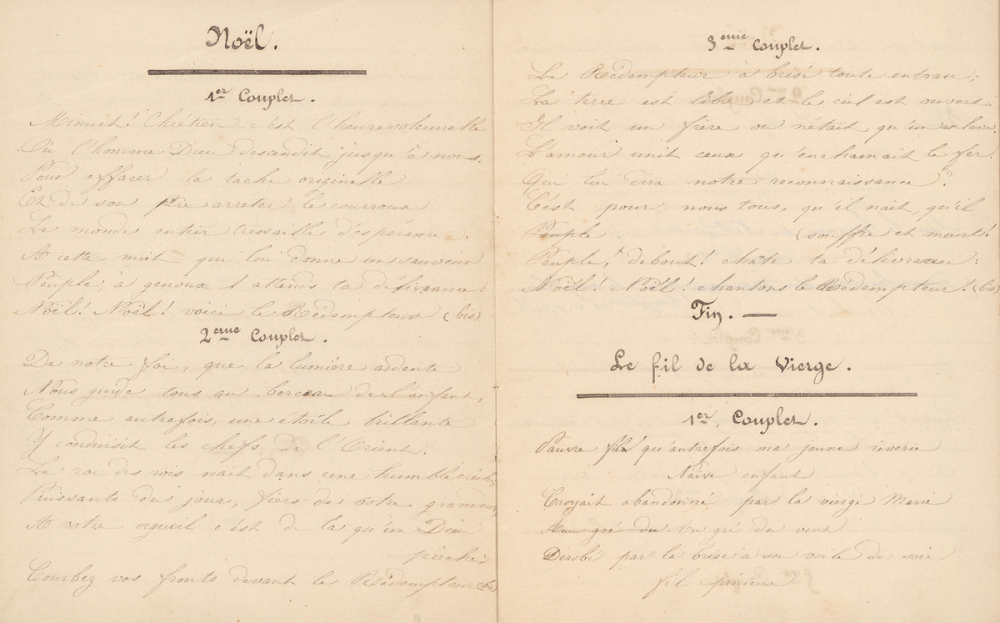 Noël.
1er Couplet.
Minuit! Chrétien, c'est l'heure solennelle
Où l'homme Dieu descendit jusqu'à nous.
Pour effacer la tache originelle
Et de son père arreter le courroux
Le monde entier tressaille d'espérance
A cette nuit qui lui donne un sauveur
Peuple, à genoux! attends ta délivrance:
Noël! Noël! voici le Rédempteur (bis)
2eme Couplet.
De notre foi, que la lumière ardente
Nous guide tous au berceau de l'enfant,
Comme autrefois, une étoile brillante
Y conduisit les chefs de l'Orient.
Le roi des rois nait dans une humble crèche
Puissants du jour, fiers de votre grandeur
A votre orgueil c'est de la qu'un Dieu
prêche,
Courbez vos fronts devant le Rédempteur (bis)
3eme Couplet.
Le Rédempteur à brisé toute entrave:
La terre est libre et le ciel est ouvert
Il voit un frère ou n'était qu'un esclave
L'amour unit ceux qu'enchainait le fer.
Qui lui dira notre reconnaissance?
C'est pour nous tous, qu'il nait, qu'il
Peuple (souffre et meurt!
Peuple, debout! chante ta délivrance:
Noël! Noël! chantons le Rédempteur! (bis)
Fin. —
Le fil de la Vierge.
1er Couplet.
Pauvre fil qu'autrefois ma jeune rêverie
Naïve enfant
Croyait abandonné par la vierge Marie
Au gré du Au gré du vent
Dérobé par la brise à son voile de soie
fil